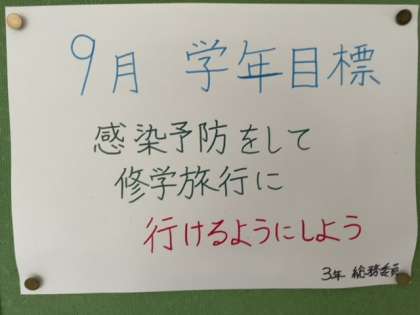 9月 学年目標
感染予防をして
修学旅行に
行けるようにしよう
3年 総務委員